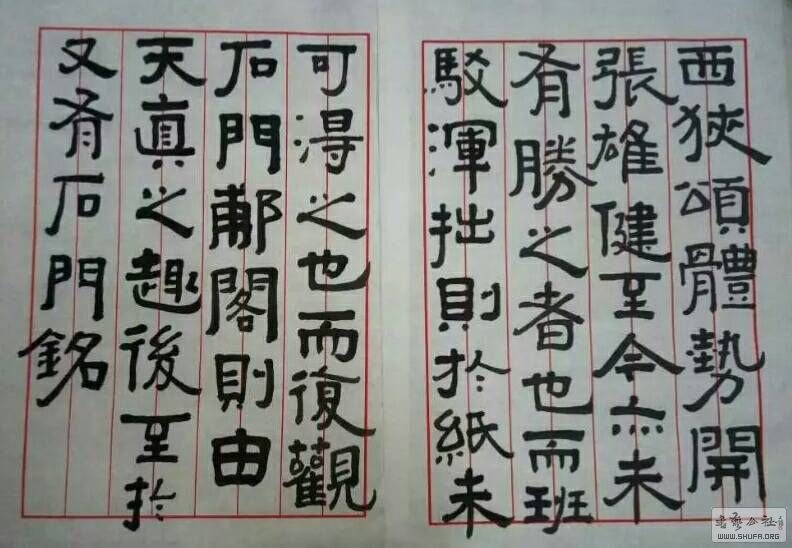 西狹頌體勢開
張雄健至今亦未
有勝之者也而班
駁渾拙則扵紙未
可得之也而復觀
石門郙閣則由
天真之趣後至扵
又有石門銘
書藝公社
WWW.SHUFA.ORG